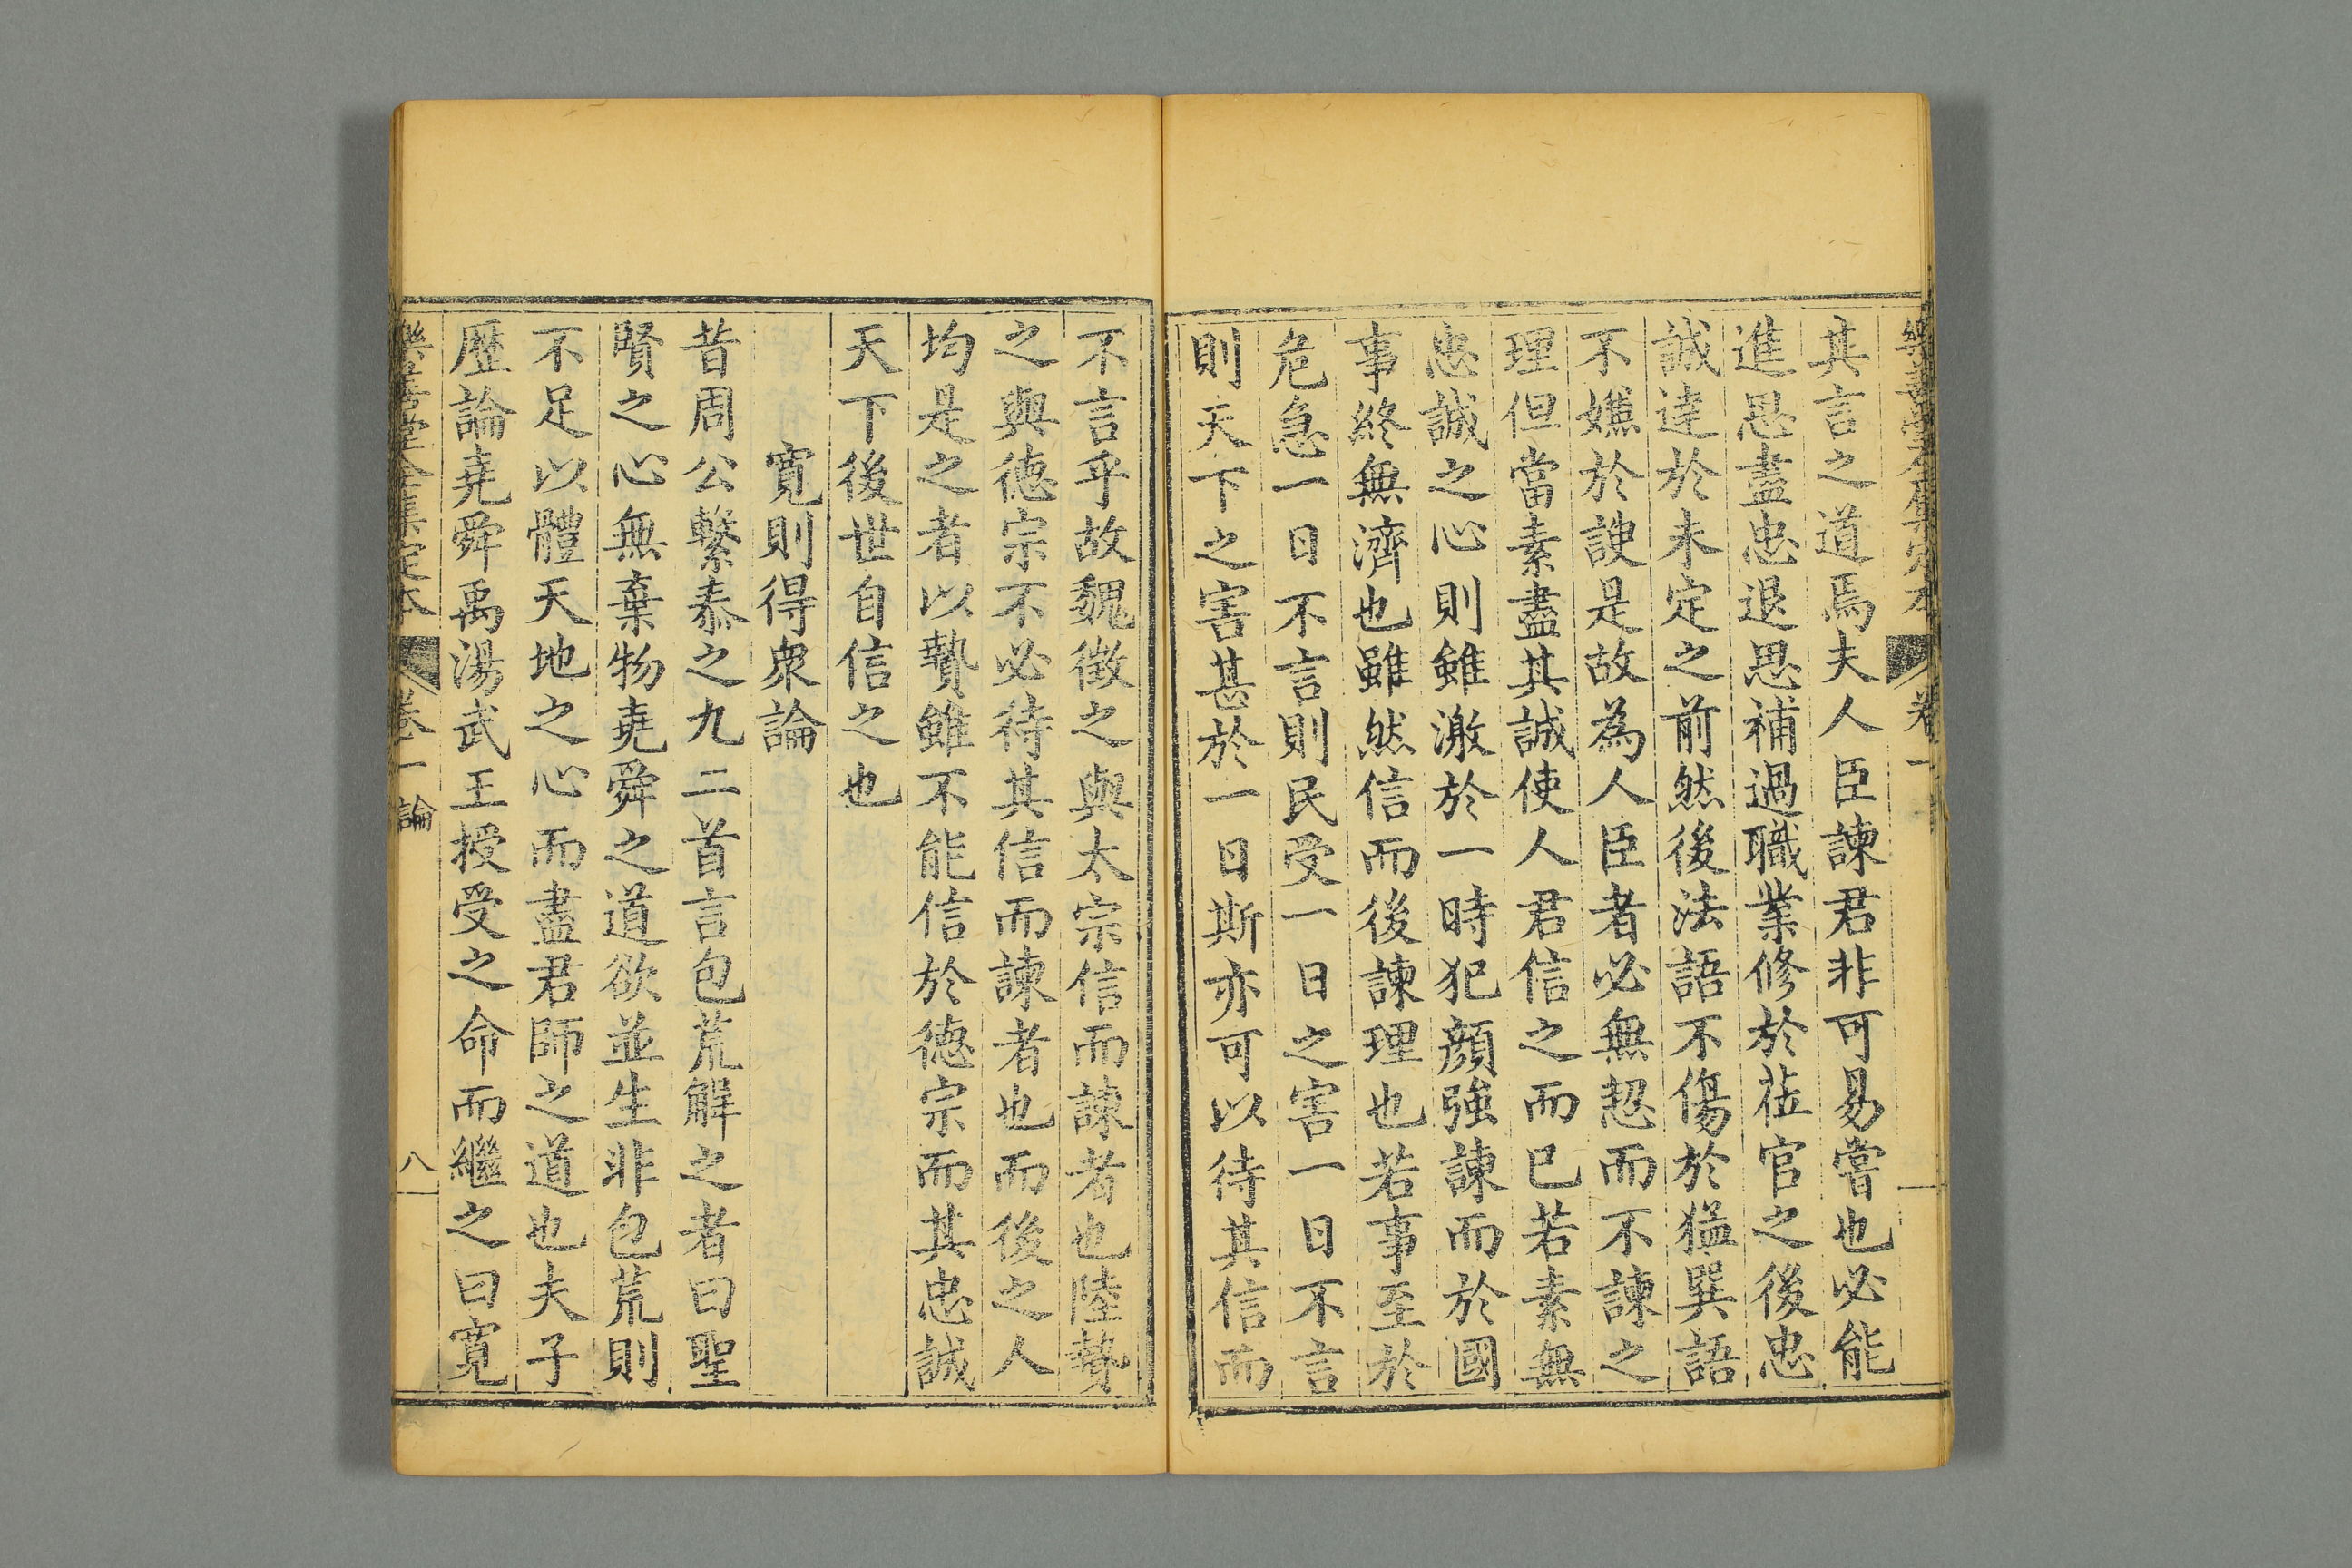 樂善堂全集定本 卷一
其言之道焉夫人臣諫君非可易嘗也必能
進思盡忠退思補過職業修於莅官之後忠
誠達於未定之前然後法語不傷於猛巽語
不嫌於諛是故為人臣者必無恝而不諫之
理但當素盡其誠使人君信之而已若素無
忠誠之心則雖激於一時犯顔強諫而於國
事終無濟也雖然信而後諫理也若事至於
危急一日不言則民受一日之害一日不言
則天下之害甚於一日斯亦可以待其信而
不言乎故魏徵之與太宗信而諫者也陸贄
之與德宗不必待其信而諫者也而後之人
均是之者以贄雖不能信於德宗而其忠誠
天下後世自信之也
寛則得衆論
昔周公繫泰之九二首言包荒解之者曰聖
賢之心無棄物堯舜之道欲並生非包荒則
不足以體天地之心而盡君師之道也夫子
歷論堯舜禹湯武王授受之命而繼之曰寛
樂善堂全集定本 卷一 論 八